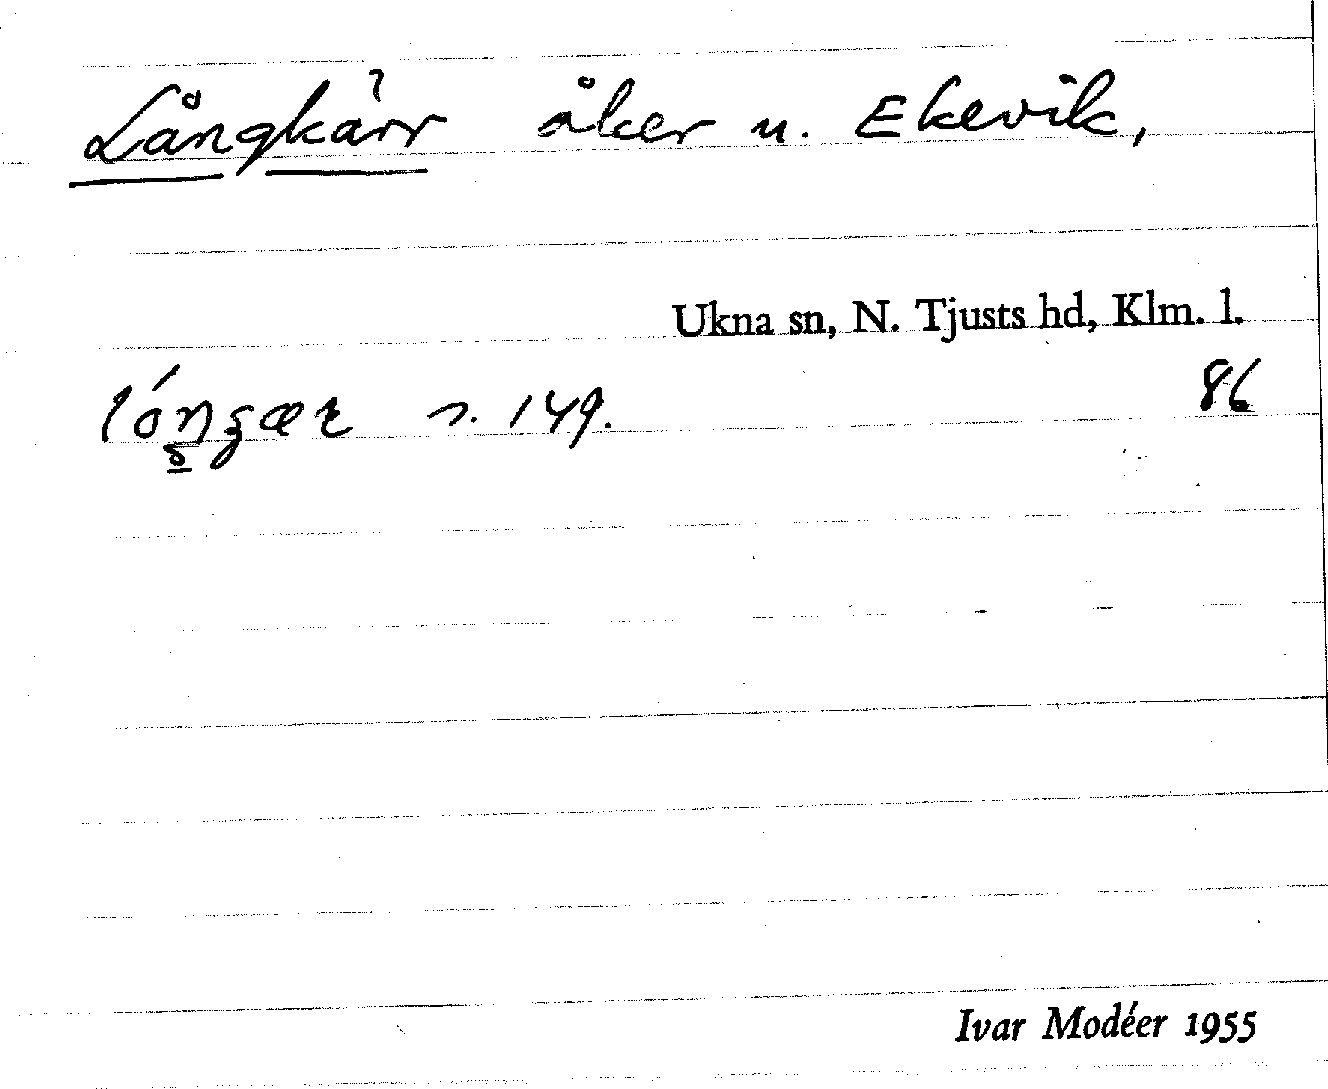 Långkärr åker u. Ekevik,
Ukna sn, N. Tjusts hd, Klm. l.
n. 149. 86
Ivar Modéer 1955